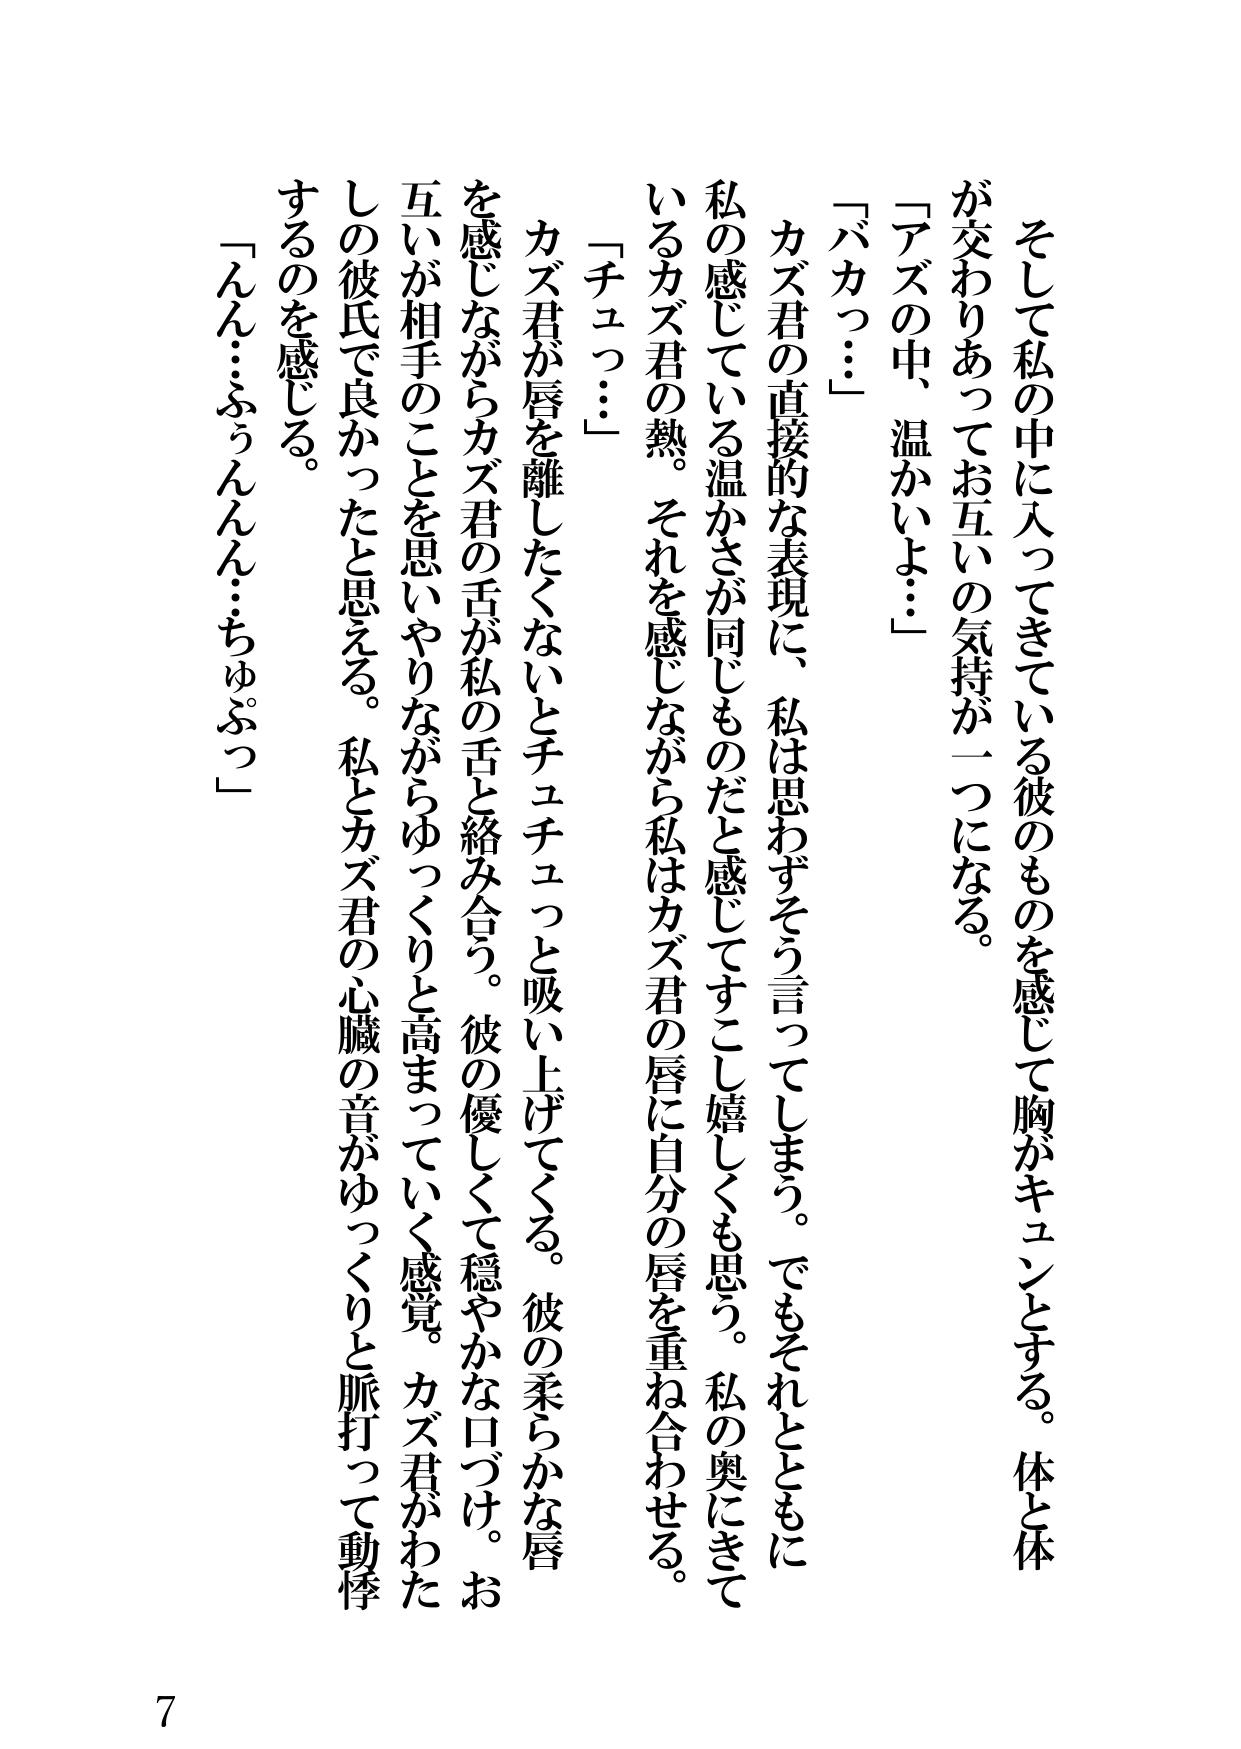 そして私の中に入ってきている彼のものを感じて胸がキュンとする。体と体
が交わりあってお互いの気持が一つになる。
「アズの中、温かいよ…」
「バカっ…」
カズ君の直接的な表現に、私は思わずそう言ってしまう。でもそれとともに
私の感じている温かさが同じものだと感じてすこし嬉しくも思う。私の奥にきて
いるカズ君の熱。それを感じながら私はカズ君の唇に自分の唇を重ね合わせる。
「チュっ…」
カズ君が唇を離したくないとチュチュっと吸い上げてくる。彼の柔らかな唇
を感じながらカズ君の舌が私の舌と絡み合う。彼の優しくて穏やかな口づけ。お
互いが相手のことを思いやりながらゆっくりと高まっていく感覚。カズ君がわた
しの彼氏で良かったと思える。私とカズ君の心臓の音がゆっくりと脈打って動悸
するのを感じる。
「んん…ふぅんんん…ちゅぷっ」
7